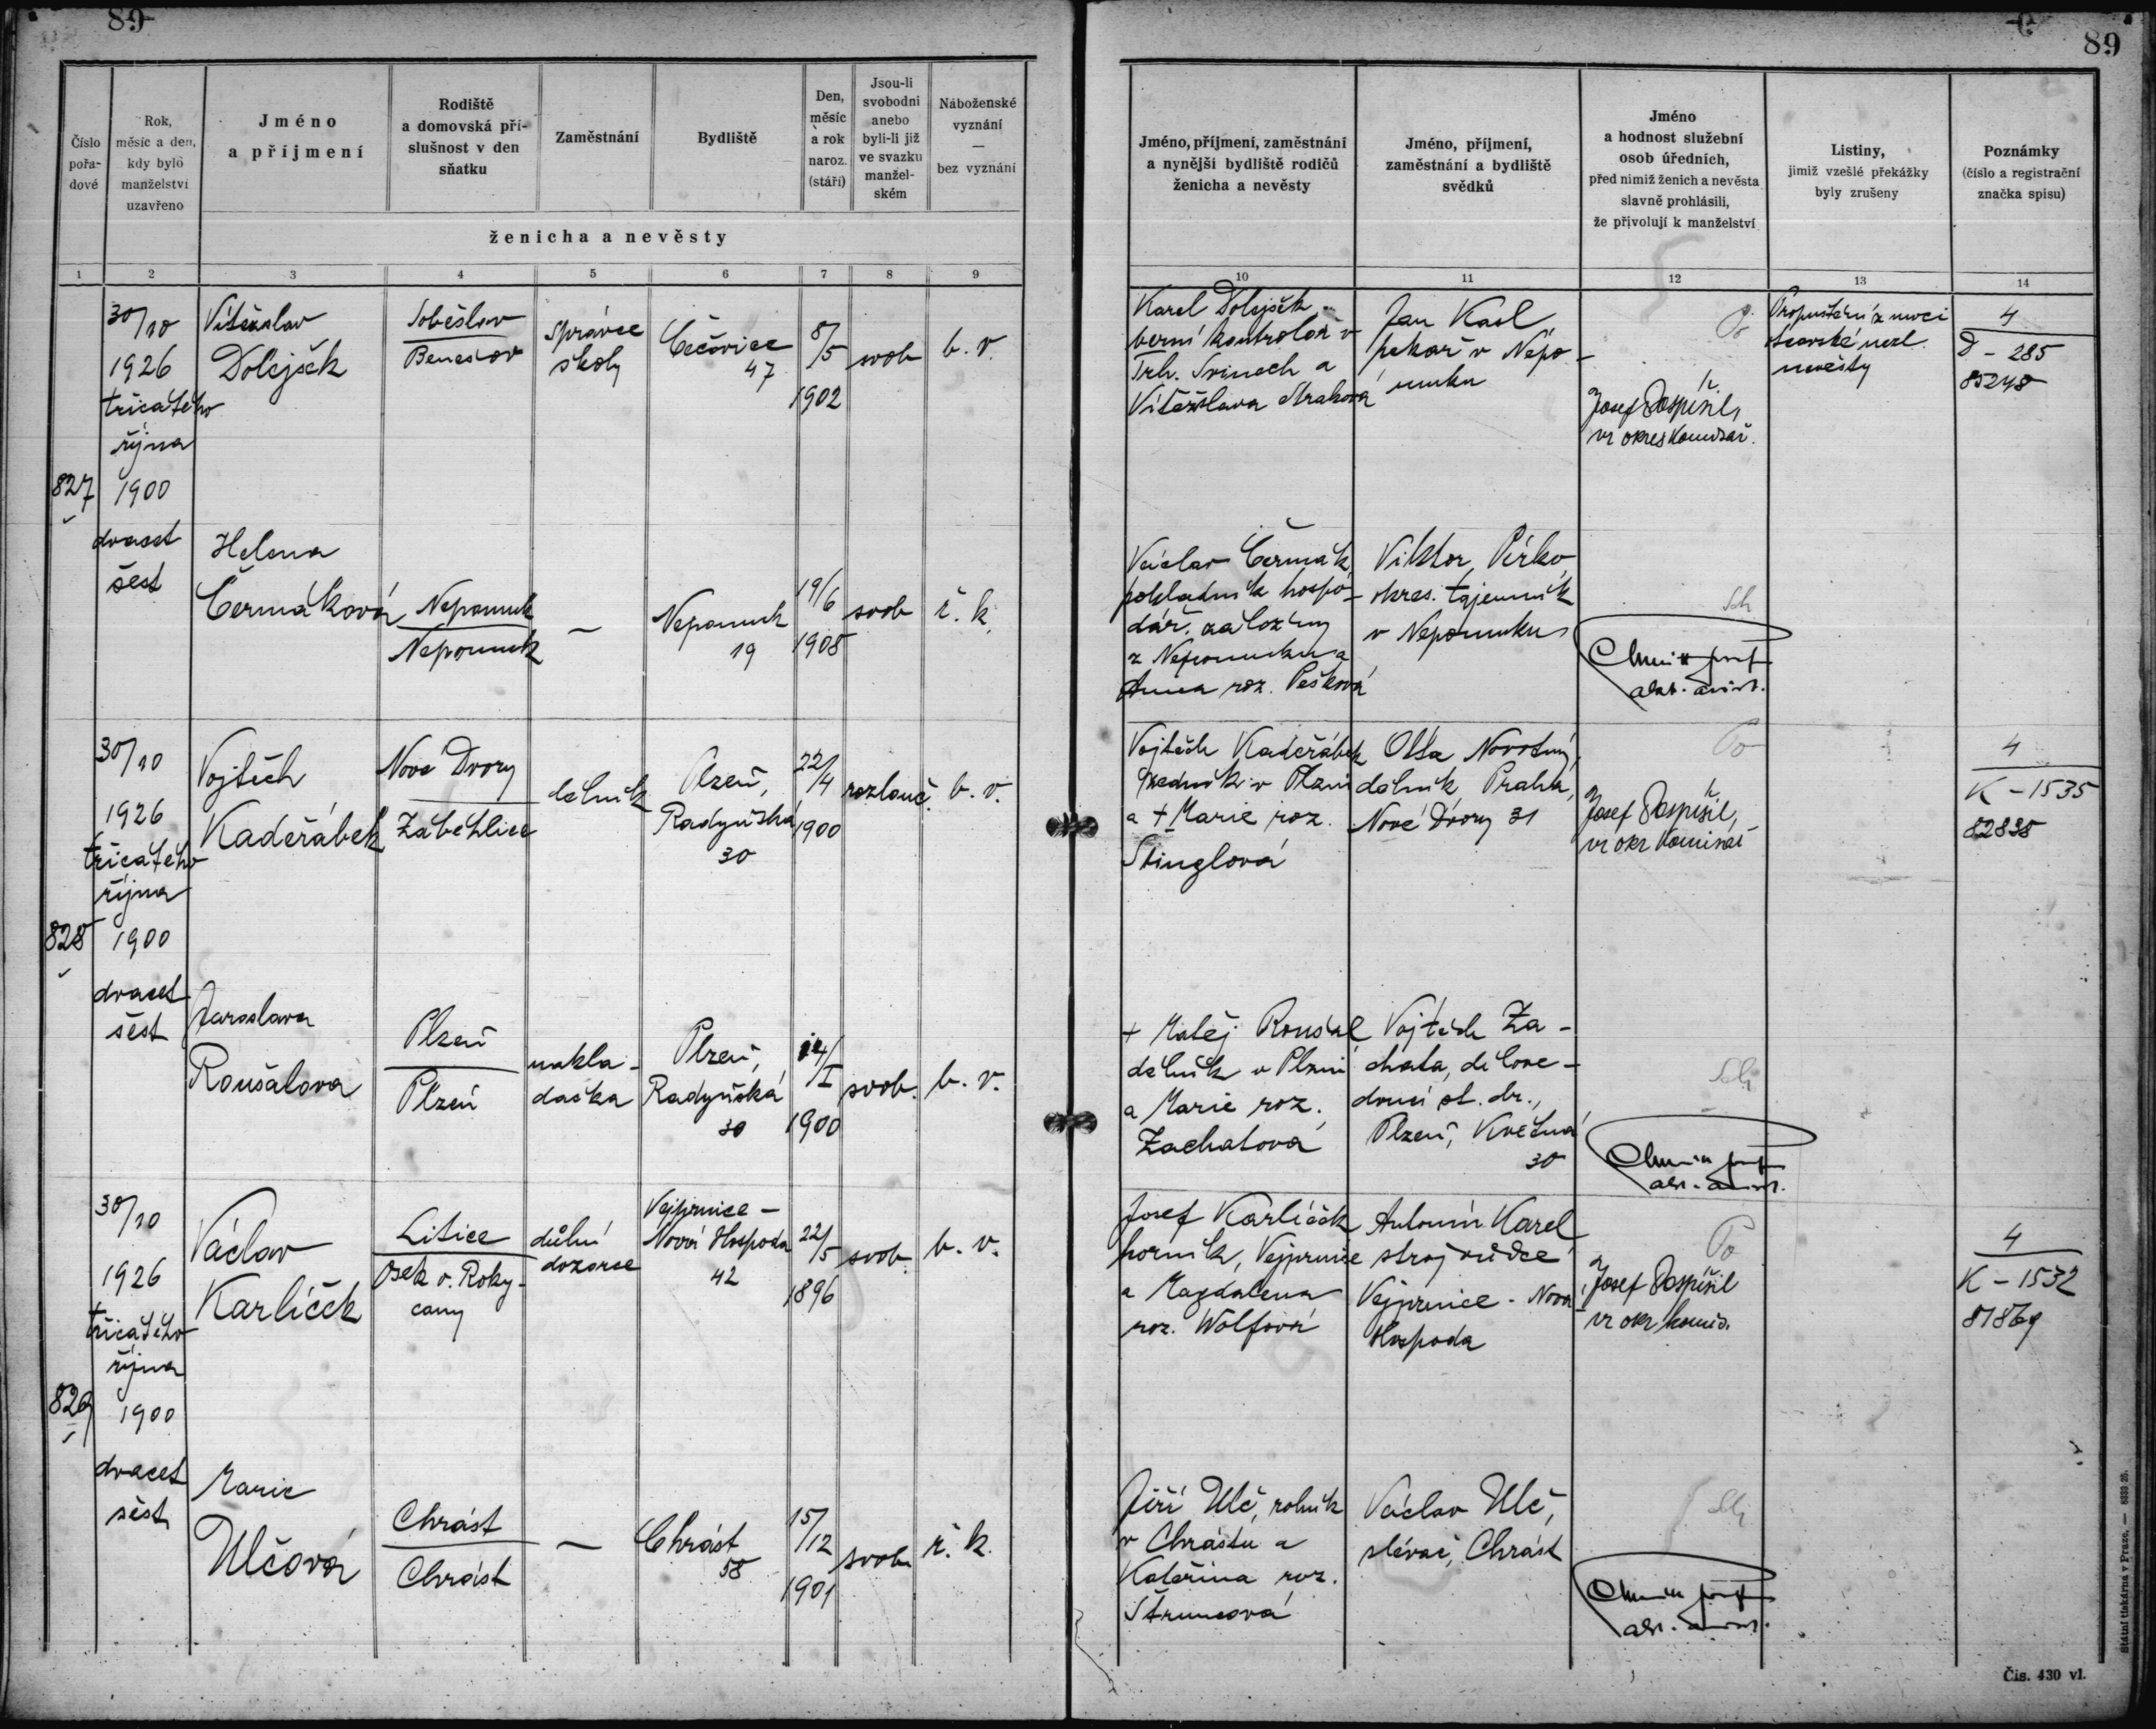 89
89
Číslo pořa-dové
Rok, měsíc a den, kdy bylo manželství uzavřeno
Jméno a příjmení
Rodiště a domovská pří-slušnost v den sňatku
Zaměstnání
Bydliště
Den, měsíc a rok naroz. (stáří)
Jsou-li svobodni anebo byli-li již ve svazku manžel-ském
Náboženské vyznání — bez vyznání
ženicha a nevěsty
Jméno, příjmení, zaměstnání a nynější bydliště rodičů ženicha a nevěsty
Jméno, příjmení, zaměstnání a bydliště svědků
Jméno a hodnost služební osob úředních, před nimiž ženich a nevěsta slavně prohlásili, že přivolují k manželství
Listiny, jimiž vzešlé překážky byly zrušeny
Poznámky (číslo a registrační značka spisu)
1 2 3 4 5 6 7 8 9 10 11 12 13 14
827
30/10
1926
třicátého
října
1900
dvacet
šest
Vítězslav
Dolejšek
Soběslav
Benešov
správce
školy
Čečovice
47
8/5
1902
svob
b. v.
Karel Dolejšek
berní kontrolor v
Trh. Svinech a
Vítězslava Straková
Jan Kasl
pekař v Nepo-
muku
Po
Josef Pospíšil,
vr okres komisař.
Propuštění z moci
otcovské nezl.
nevěsty
4
D - 285
85248
Helena
Čermáková
Nepomuk
Nepomuk
—
Nepomuk
19
19/6
1908
svob
ř. k.
Václav Čermák,
pokladník hospo-
dář. záložny
z Nepomuku a
Anna roz. Pešková
Viktor Pirko,
okres. tajemník
v Nepomuku
Sch
828
30/10
1926
třicátého
října
1900
dvacet
šest
Vojtěch
Kadeřábek
Nové Dvory
Záběhlice
dělník
Plzeň,
Radyňská
30
22/4
1900
rozlouč.
b. v.
Vojtěch Kadeřábek
zedník v Plzni
a + Marie roz.
Stinglová
Otta Novotný,
dělník Praha,
Nové Dvory 31
Po
Josef Pospíšil,
vr okr komisař
4
K - 1535
82838
Jaroslava
Roušalova
Plzeň
Plzeň
nakla-
dačka
Plzeň,
Radyňská
30
14/I
1900
svob.
b. v.
+ Matěj Roušal,
dělník v Plzni
a Marie roz.
Zachatová
Vojtěch Za-
chata, dílove-
doucí st. dr.,
Plzeň, Květná
30
Sch
829
30/10
1926
třicátého
října
1900
dvacet
šest
Václav
Karlíček
Litice
Osek o. Roky-
cany
důlní
dozorce
Vejprnice -
Nová Hospoda
42
22/5
1896
svob.
b. v.
Josef Karlíček
horník, Vejprnice
a Magdalena
roz. Wolfová
Antonín Karel
strojvůdce
Vejprnice - Nová
Hospoda
Po
Josef Pospíšil
vr okr komis.
4
K - 1532
81869
Marie
Ulčová
Chrást
Chrást
—
Chrást
58
15/12
1901
svob
ř. k.
Jiří Ulč, rolník
v Chrástu a
Kateřina roz.
Štruncová
Václav Ulč,
slévač, Chrást
Sch
Státní tiskárna v Praze. — 8333 25.
Čís. 430 vl.